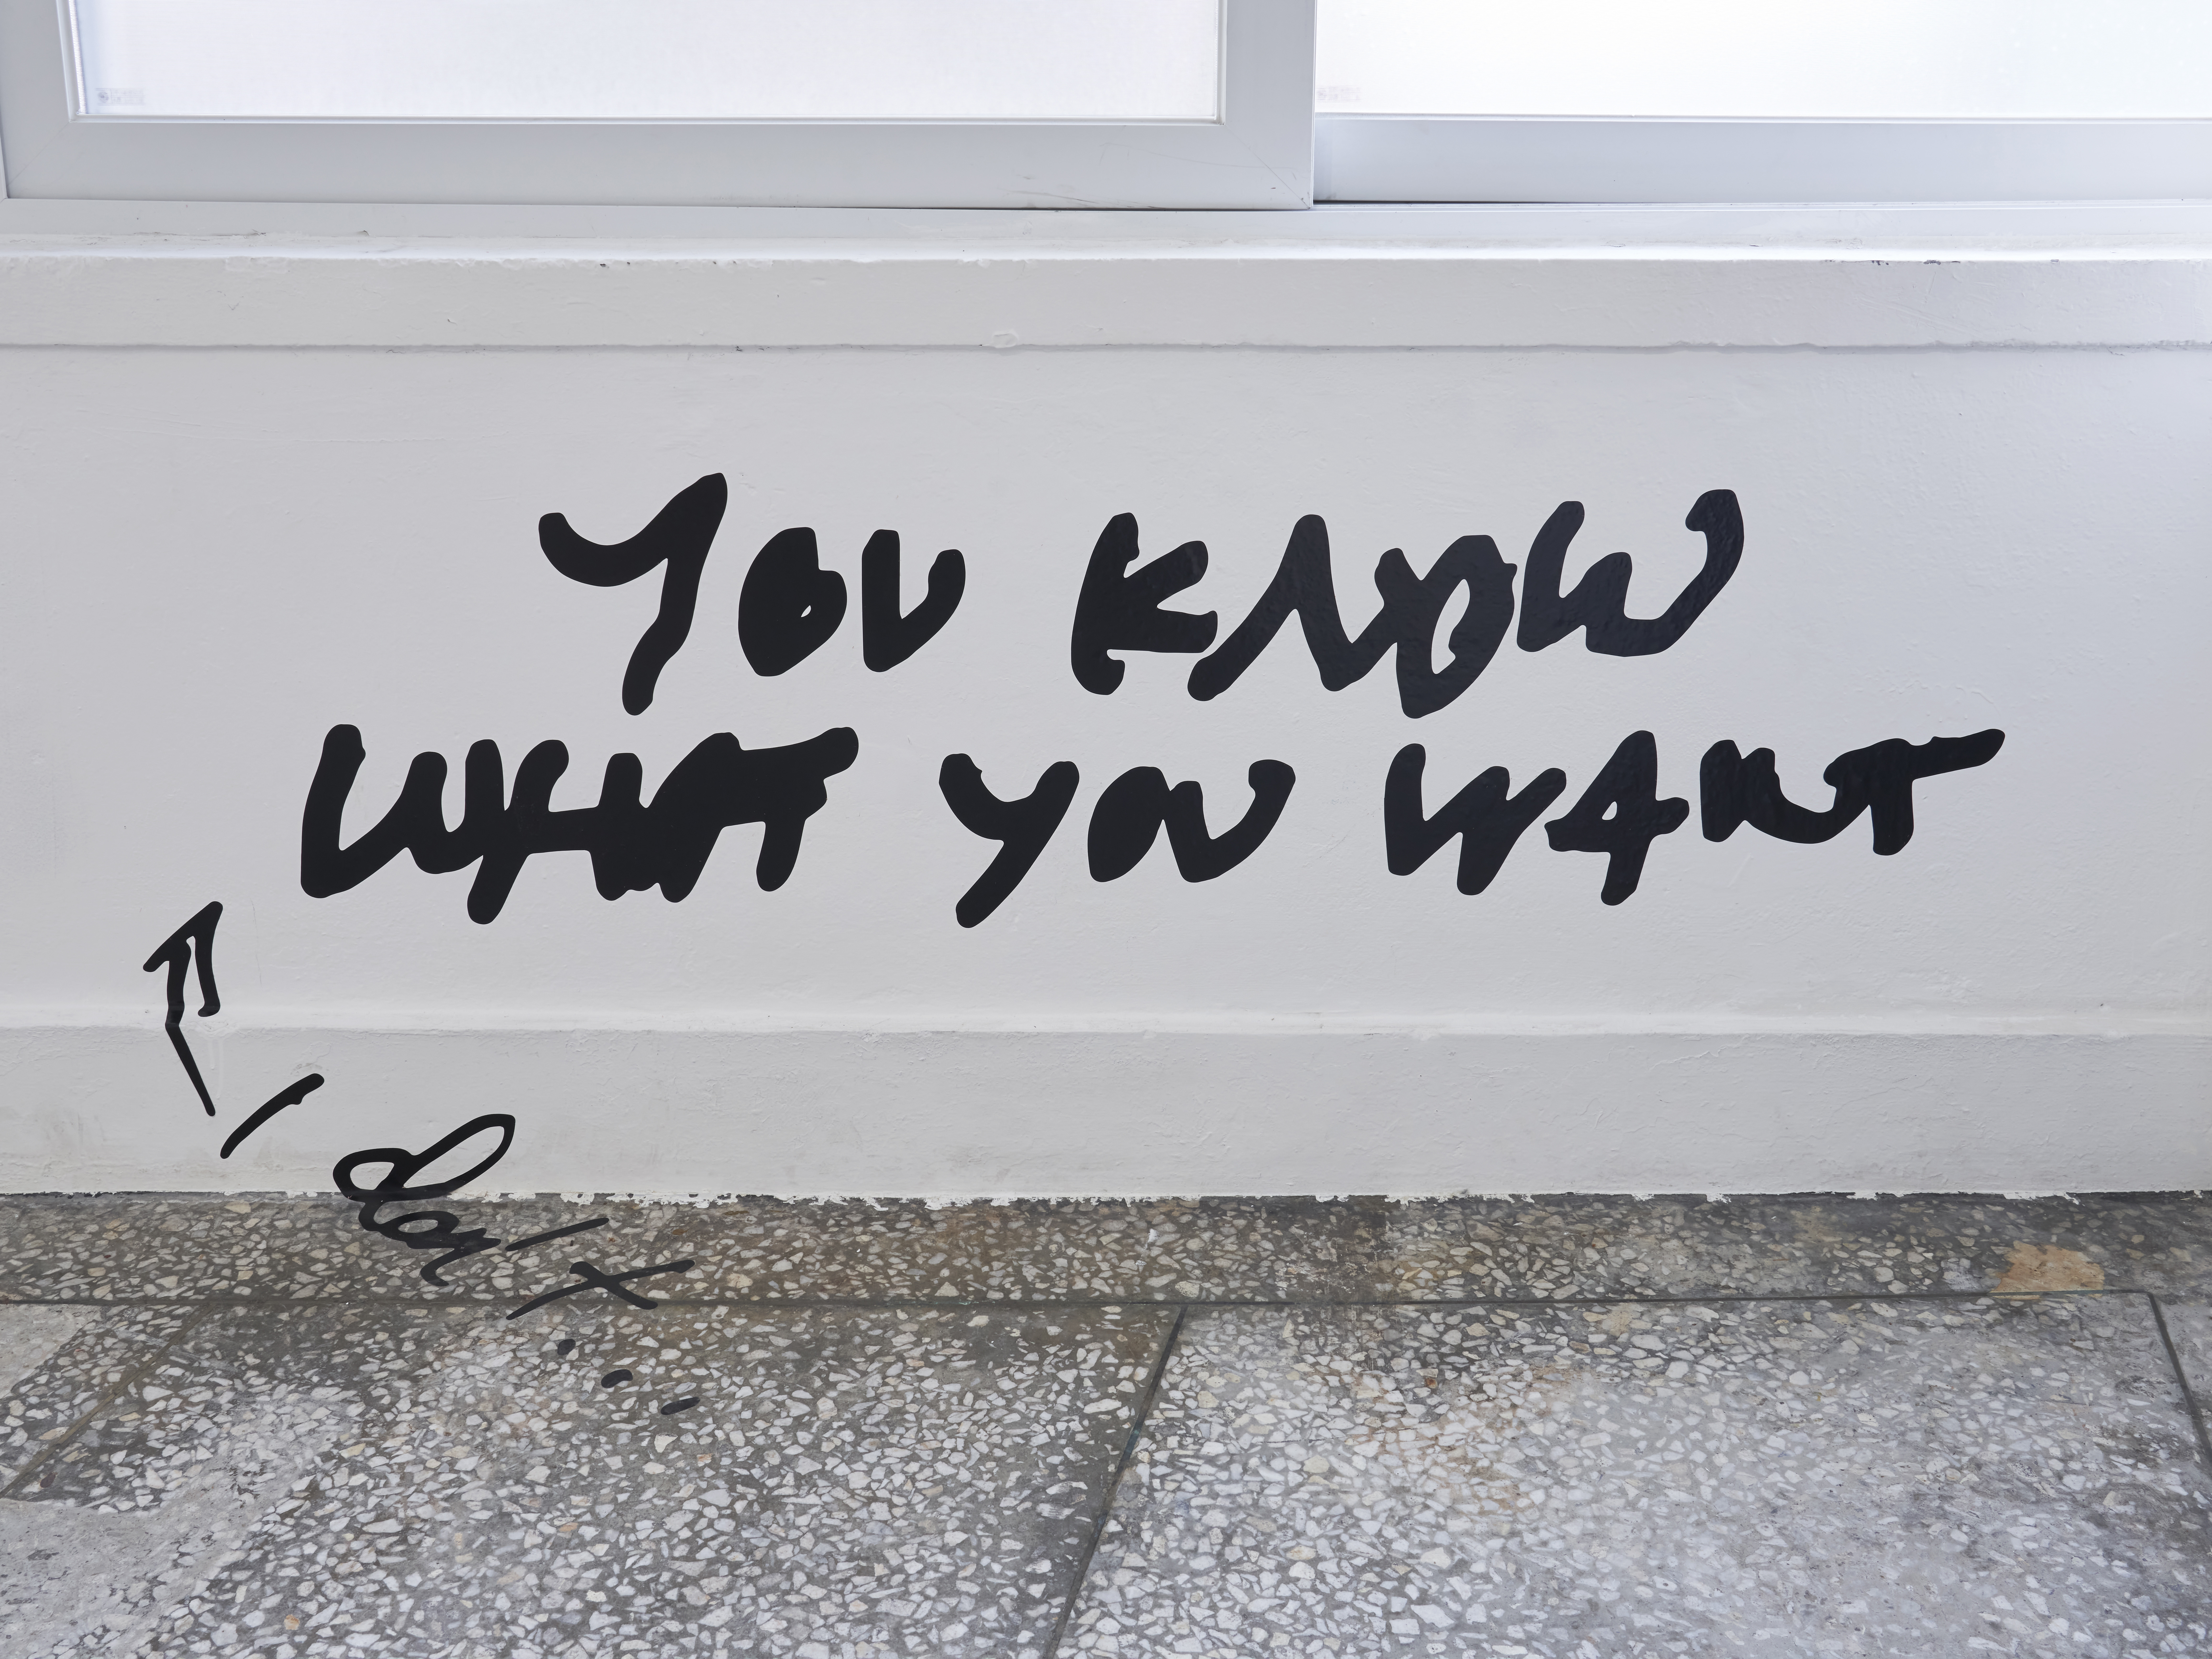 YOU KNOW
WHAT YOU WANT